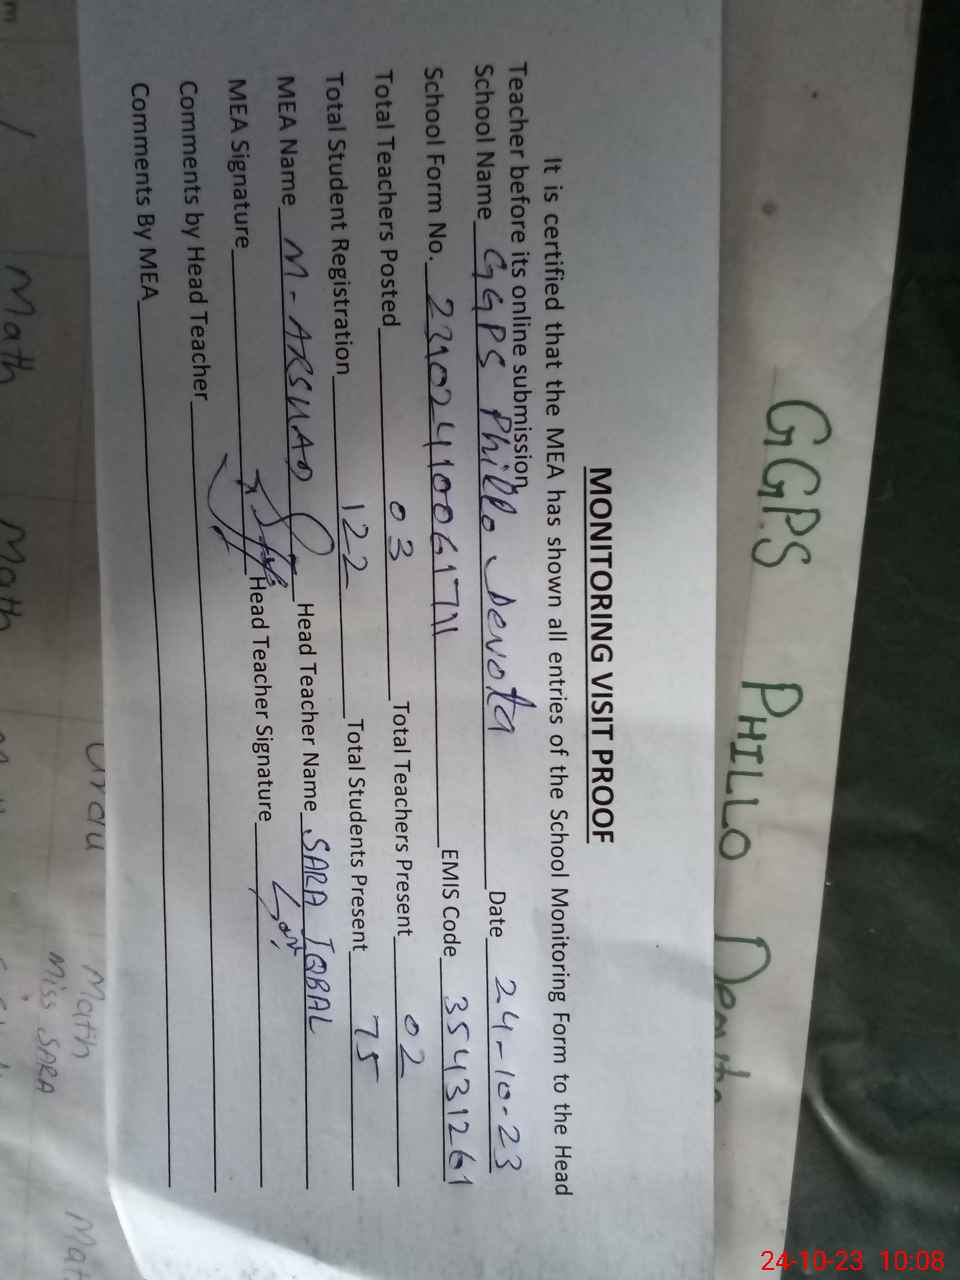 GGPS PHILLO Demta
MONITORING VISIT PROOF
It is certified that the MEA has shown all entries of the School Monitoring Form to the Head
Teacher before its online submission.
School Name GGPS Phillo Devota Date 24-10-23
School Form No. EMIS Code 35431261
Total Teachers Posted 03 Total Teachers Present 02
Total Student Registration 122 Total Students Present 75
MEA Name M-ARSHAD Head Teacher Name SARA IQBAL
MEA Signature Head Teacher Signature
Comments by Head Teacher
Comments By MEA
Urdu Math Mat
Miss SARA
Math Math
24-10-23 10:08